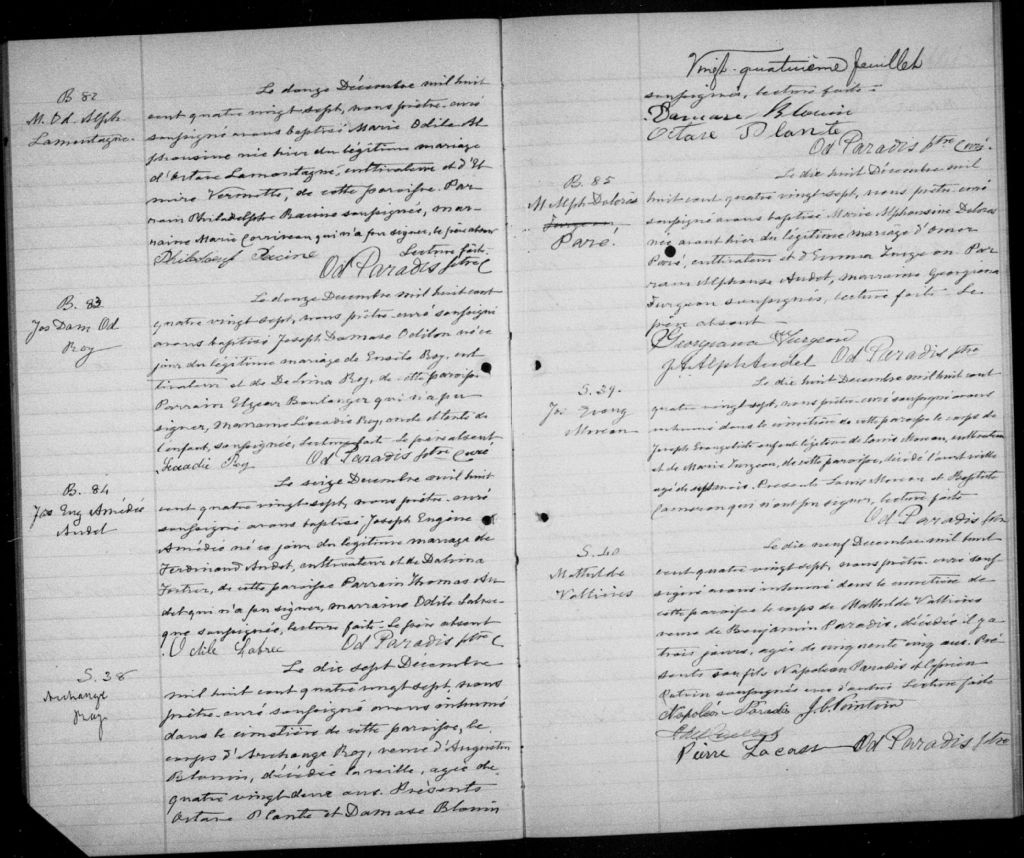 B 82
M. Od. Alph.
Lamontagne.
Le douze Décembre mil huit
cent quatre vingt sept, nous prêtre-curé
soussigné avons baptisé Marie Odile Al
phonsine née hier du légitime mariage
d'Octave Lamontagne, cultivateur et d'El
mire Vermette, de cette paroisse. Par-
rain Philadelphe Racine soussigné, mar-
raine Marie Corriveau qui n'a pu signer, le père absent
Lecture faite.
Philadelph Racine
Od Paradis ptre C
B. 83
Jos Dam Od
Roy
Le douze Decembre mil huit cent
quatre vingt sept, nous prêtre-curé soussigné
avons baptisé Joseph Damase Odilon né ce
jour du légitime mariage de Roy, cul
tivateur et de Delvina Roy, de cette paroisse
Parrain Elzear Boulanger qui n'a pu
signer, marraine Léocadie Roy, tante de
l'enfant, soussignée, lecture faite. Le père absent
Léocadie Roy
Od Paradis ptre Curé
B. 84
Jos Eug Amédée
Audet
Le seize Decembre mil huit
cent quatre vingt sept, nous prêtre-curé
soussigné avons baptisé Joseph Eugène
Amédée né ce jour du légitime mariage de
Ferdinand Audet, cultivateur et de Delvina
Fortier, de cette paroisse Parrain Thomas Au
det qui n'a pu signer, marraine Odile Labrec-
que soussignée, lecture faite. Le père absent
Odile Labrec
Od Paradis ptre C
S. 38
Archange
Roy.
Le dix sept Decembre
mil huit cent quatre vingt sept, nous
prêtre-curé soussigné avons inhumé
dans le cimetière de cette paroisse, le
corps d'Archange Roy, veuve d'Augustin
Blouin, décédée la veille, agée de
quatre vingt deux ans. Présents
Octave Plante et Damase Blouin
Vingt-quatrième feuillet
soussignés, lecture faite-
Damase Blouin
Octave Plante
Od Paradis ptre Curé.
B. 85
M Alph Dolorès
Turgeon
Paré.
Le dix huit Décembre mil
huit cent quatre vingt sept, nous prêtre-curé
soussigné avons baptisé Marie Alphonsine Dolorès
née avant hier du légitime mariage d'Omer
Paré, cultivateur et d'Emma Turgeon. Par
rain Alphonse Audet, marraine Georgiana
Turgeon soussignés, lecture faite. Le
père absent
Georgiana Turgeon
J. A. Alph Audet
Od Paradis ptre
S. 39.
Jos Evang
Moreau
Le dix huit Decembre mil huit cent
quatre vingt sept, nous prêtre-curé soussigné avons
inhumé dans le cimetière de cette paroisse le corps de
Joseph Evangeliste enfant légitime de Louis Moreau, cultivateur
et de Marie Turgeon, de cette paroisse, décédé l'avant veille
agé de sept mois. Présents Louis Moreau et Baptiste
Cameron qui n'ont pu signer, lecture faite
Od Paradis ptre
S. 40
Mathilde
Vallières
Le dix neuf Decembre mil huit
cent quatre vingt sept, nous prêtre-curé sous-
signé avons inhumé dans le cimetière de
cette paroisse le corps de Mathilde Vallières
veuve de Benjamin Paradis, décédée il y a
trois jours, agée de cinquante cinq ans. Pré-
sents son fils Napoléon Paradis et Cyprien
soussignés avec d'autres Lecture faite
Napoléon Paradis
Pierre Lacasse
Od Paradis ptre